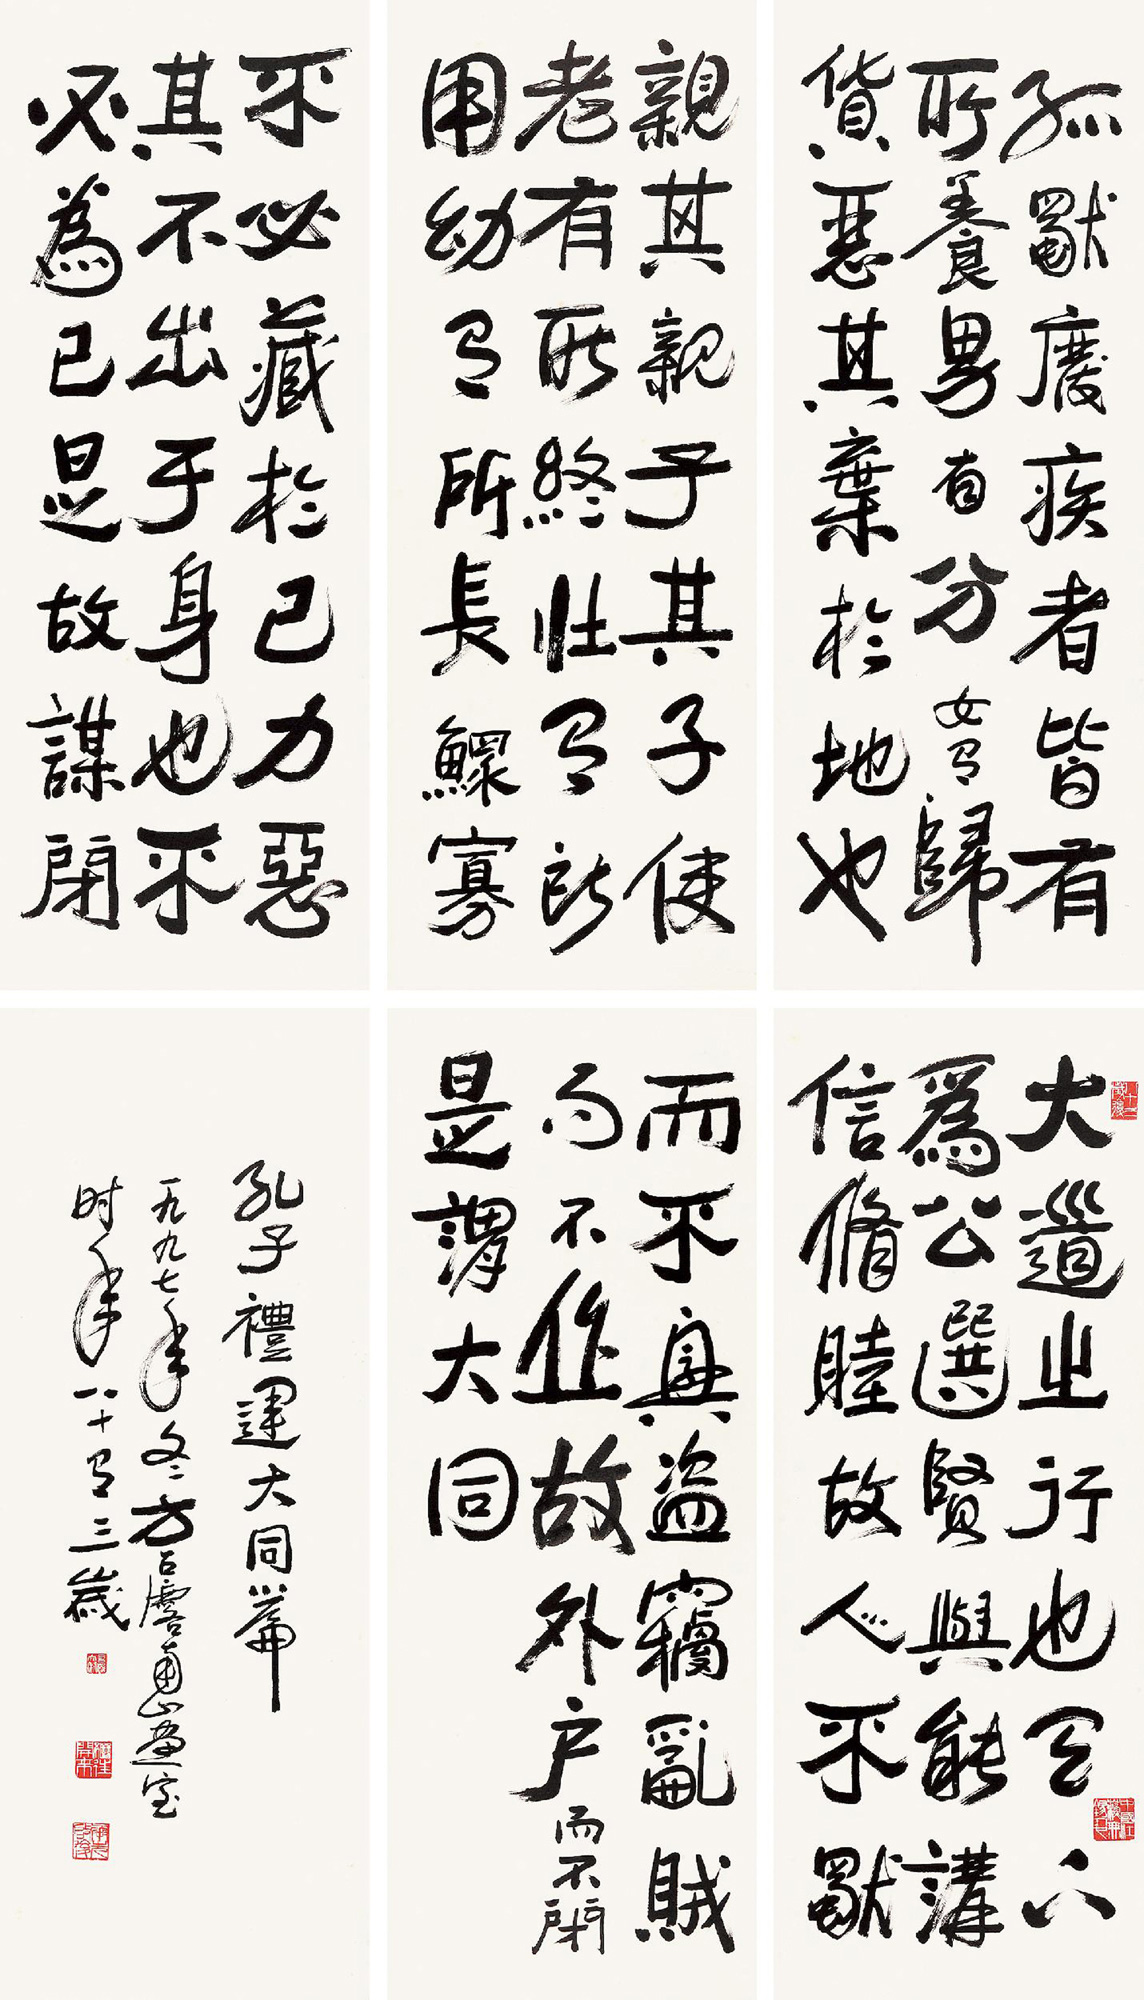 大道之行也天下
為公選賢與能講
信脩睦故人不獨
親其親子其子使
老有所終壯有所
用幼有所長鰥寡
孤獨廢疾者皆有
所養男有分女有歸
貨惡其棄於地也
不必藏於己力惡
其不出于身也不
必為己是故謀閉
而不興盜竊亂賊
而不作故外户而不閉
是謂大同
孔子禮運大同篇
一九九七年冬方召麐山畫室
时年八十有三歲